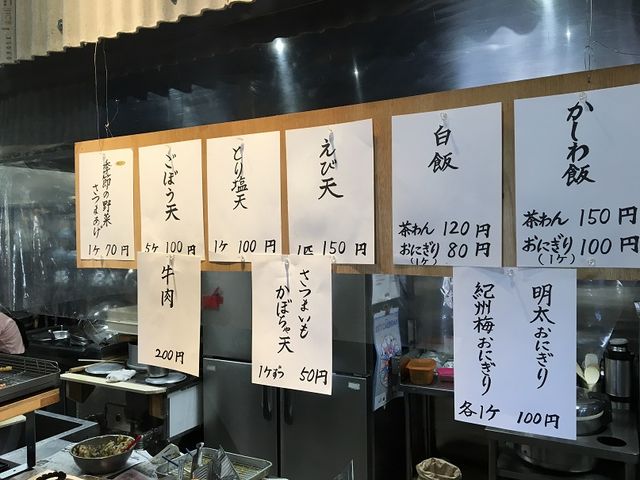 季節の野菜
さつまあげ
1ケ 70円
ごぼう天
5ケ 100円
とり塩天
1ケ 100円
えび天
1匹 150円
白飯
茶わん 120円
おにぎり 80円
(1ケ)
かしわ飯
茶わん 150円
おにぎり 100円
(1ケ)
牛肉
200円
さつまいも
かぼちゃ天
1ケずつ 50円
明太おにぎり
紀州梅おにぎり
各1ケ 100円